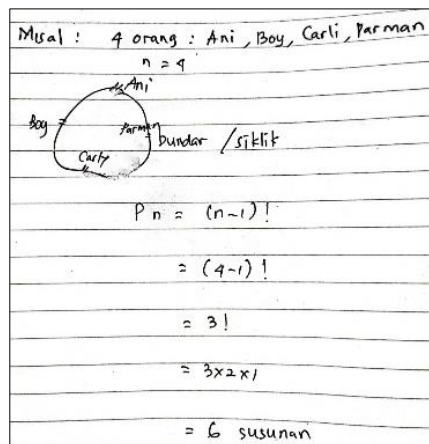 Misal : 4 orang : Ani, Boy, Carli, Parman
n = 4
Ani
Boy
Parman
bundar / siklik
Carly
P n = (n-1) !
= (4-1) !
= 3 !
= 3x2x1
= 6 susunan